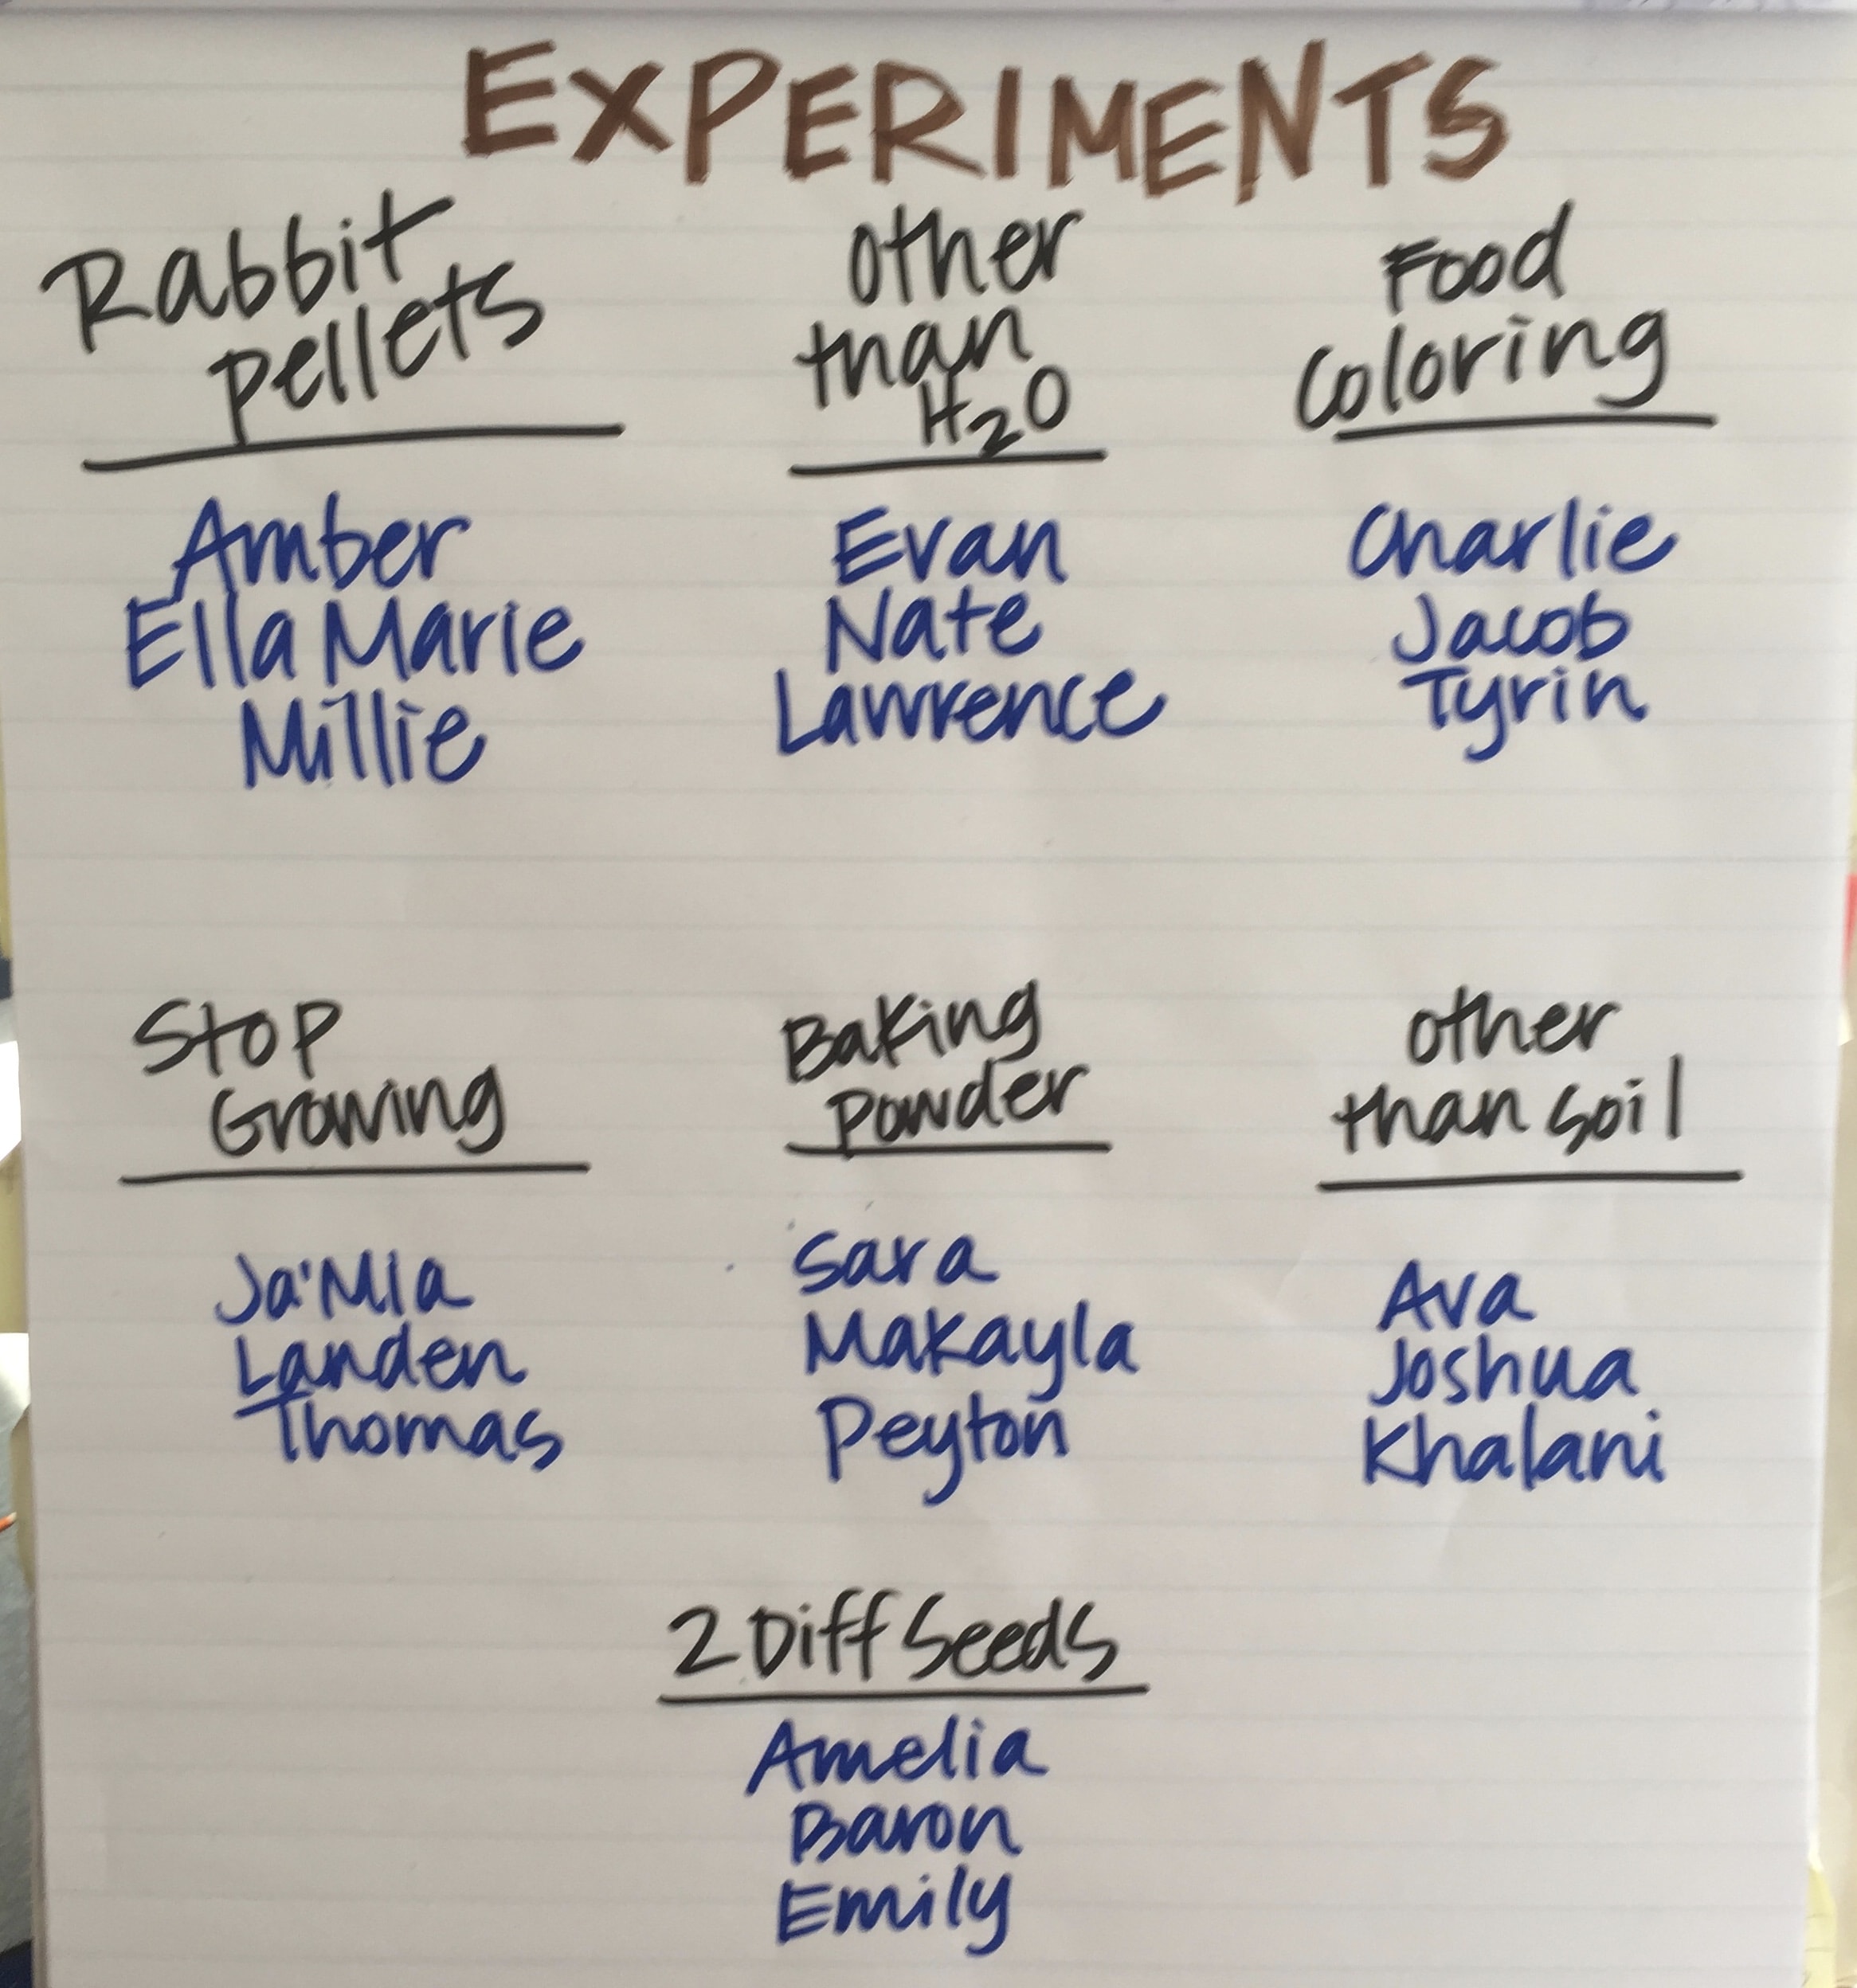 EXPERIMENTS
Rabbit
pellets
Amber
Ella Marie
Millie
Other
than
H2O
Evan
Nate
Lawrence
Food
Coloring
Charlie
Jacob
Tyrin
Stop
Growing
Ja'Mia
Landen
Thomas
Baking
Powder
Sara
Makayla
Peyton
Other
than soil
Ava
Joshua
Khalani
2 Diff Seeds
Amelia
Baron
Emily